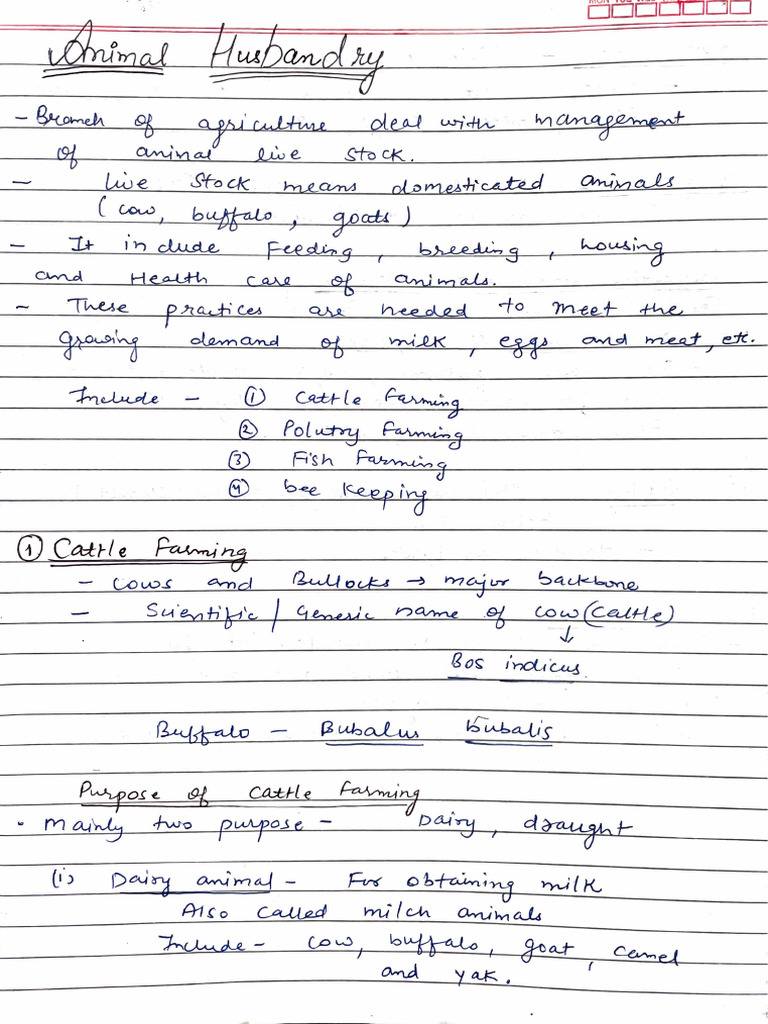 Animal Husbandry
- Branch of agriculture deal with management
of animal live stock.
- live stock means domesticated animals
(cow, buffalo, goats)
- It include Feeding, breeding, housing
and Health care of animals.
- These practices are needed to meet the
growing demand of milk, eggs and meat, etc.
Include - ① Cattle Farming
② Polutry Farming
③ Fish Farming
④ bee Keeping
① Cattle Farming
- Cows and Bullocks → major backbone
- Scientific / Generic name of cow (Cattle)
↓
Bos indicus
Buffalo - Bubalus bubalis
Purpose of Cattle Farming
• Mainly two purpose - Dairy, draught
(i) Dairy animal - For obtaining milk
Also called milch animals
Include - cow, buffalo, goat, camel
and yak.